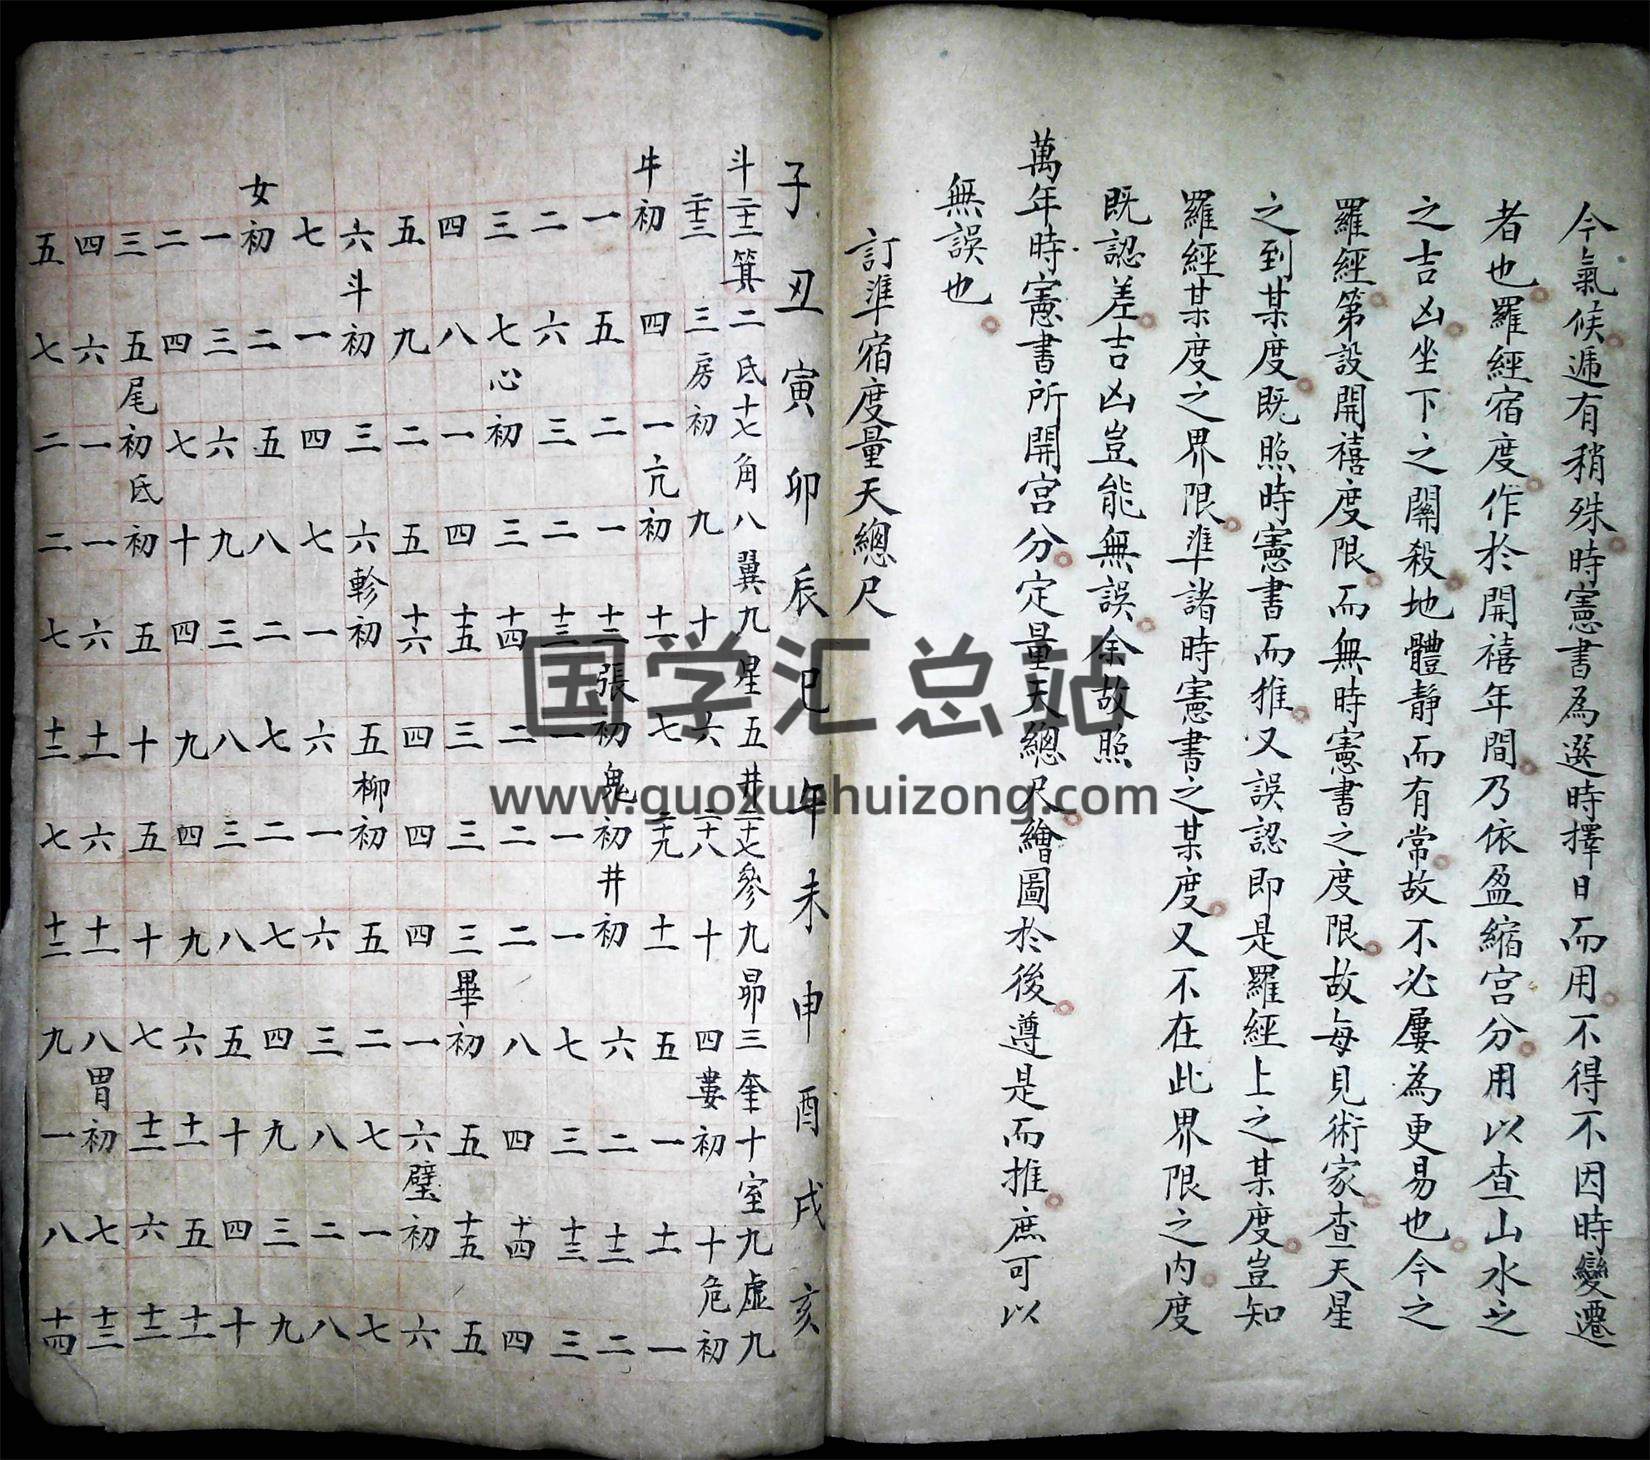 今氣候遞有稍殊時憲書為選時擇日而用不得不因時變遷
者也羅經宿度作於開禧年間乃依盈縮宮分用以查山水之
之吉凶坐下之關殺地體靜而有常故不必屢為更易也今之
羅經第設開禧度限而無時憲書之度限故每見術家查天星
之到某度既照時憲書而推又誤認即是羅經上之某度豈知
羅經某度之界限準諸時憲書之某度又不在此界限之內度
既認差吉凶豈能無誤余故照
萬年時憲書所開宮分定量天總尺繪圖於後遵是而推庶可以
無誤也
訂準宿度量天總尺
子丑寅卯辰巳午未申酉戌亥
斗二十二箕二氐十七角八翼九星五井二十七參九昴三奎十室九虛九
二十三三房初九十六二十八十四婁初十危初
牛初四一亢初十一七二十九十一五一十一一
一五二一十二張初鬼初井初六二十二二
二六三二十三一一一七三十三三
三七心初三十四二二二八四十四四
四八一四十五三三三畢初五十五五
五九二五十六四四四一六璧初六
六斗初三六軫初五柳初五二七一七
七一四七一六一六三八二八
女初二五八二七二七四九三九
一三六九三八三八五十四十
二四七十四九四九六十一五十一
三五尾初氐初五十五十七十二六十二
四六一一六十一六十一八胃初七十三
五七二二七十二七十二九一八十四
国学汇总站
www.guoxuehuizong.com